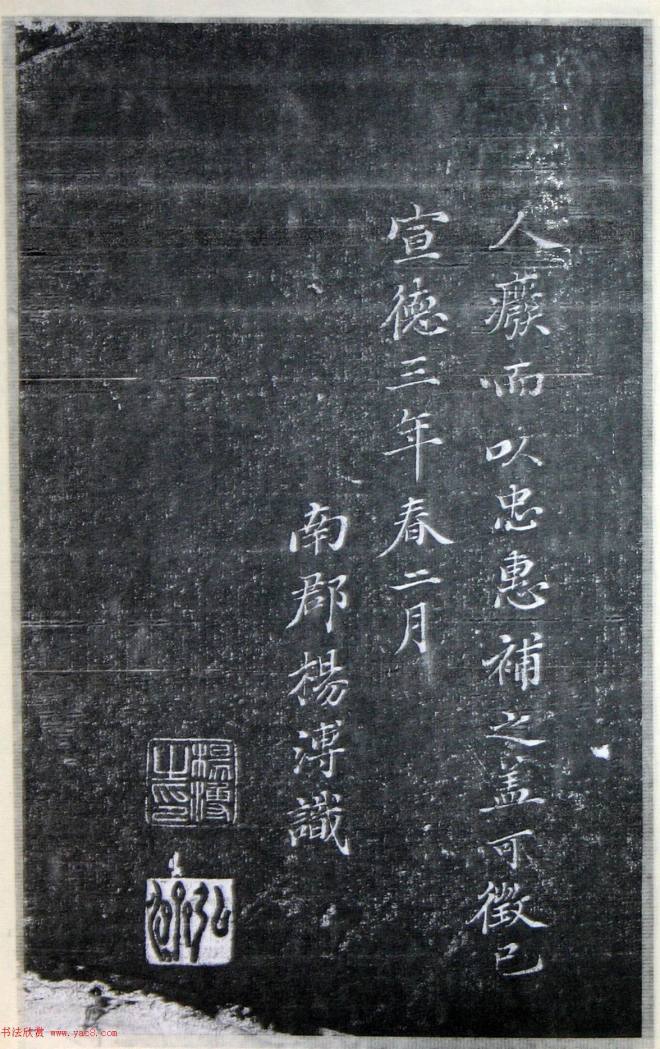 人癈而以忠惠補之盖可徵已
宣德三年春二月
南郡楊溥識
楊溥之印
弘濟
书法欣赏 www.yac8.com